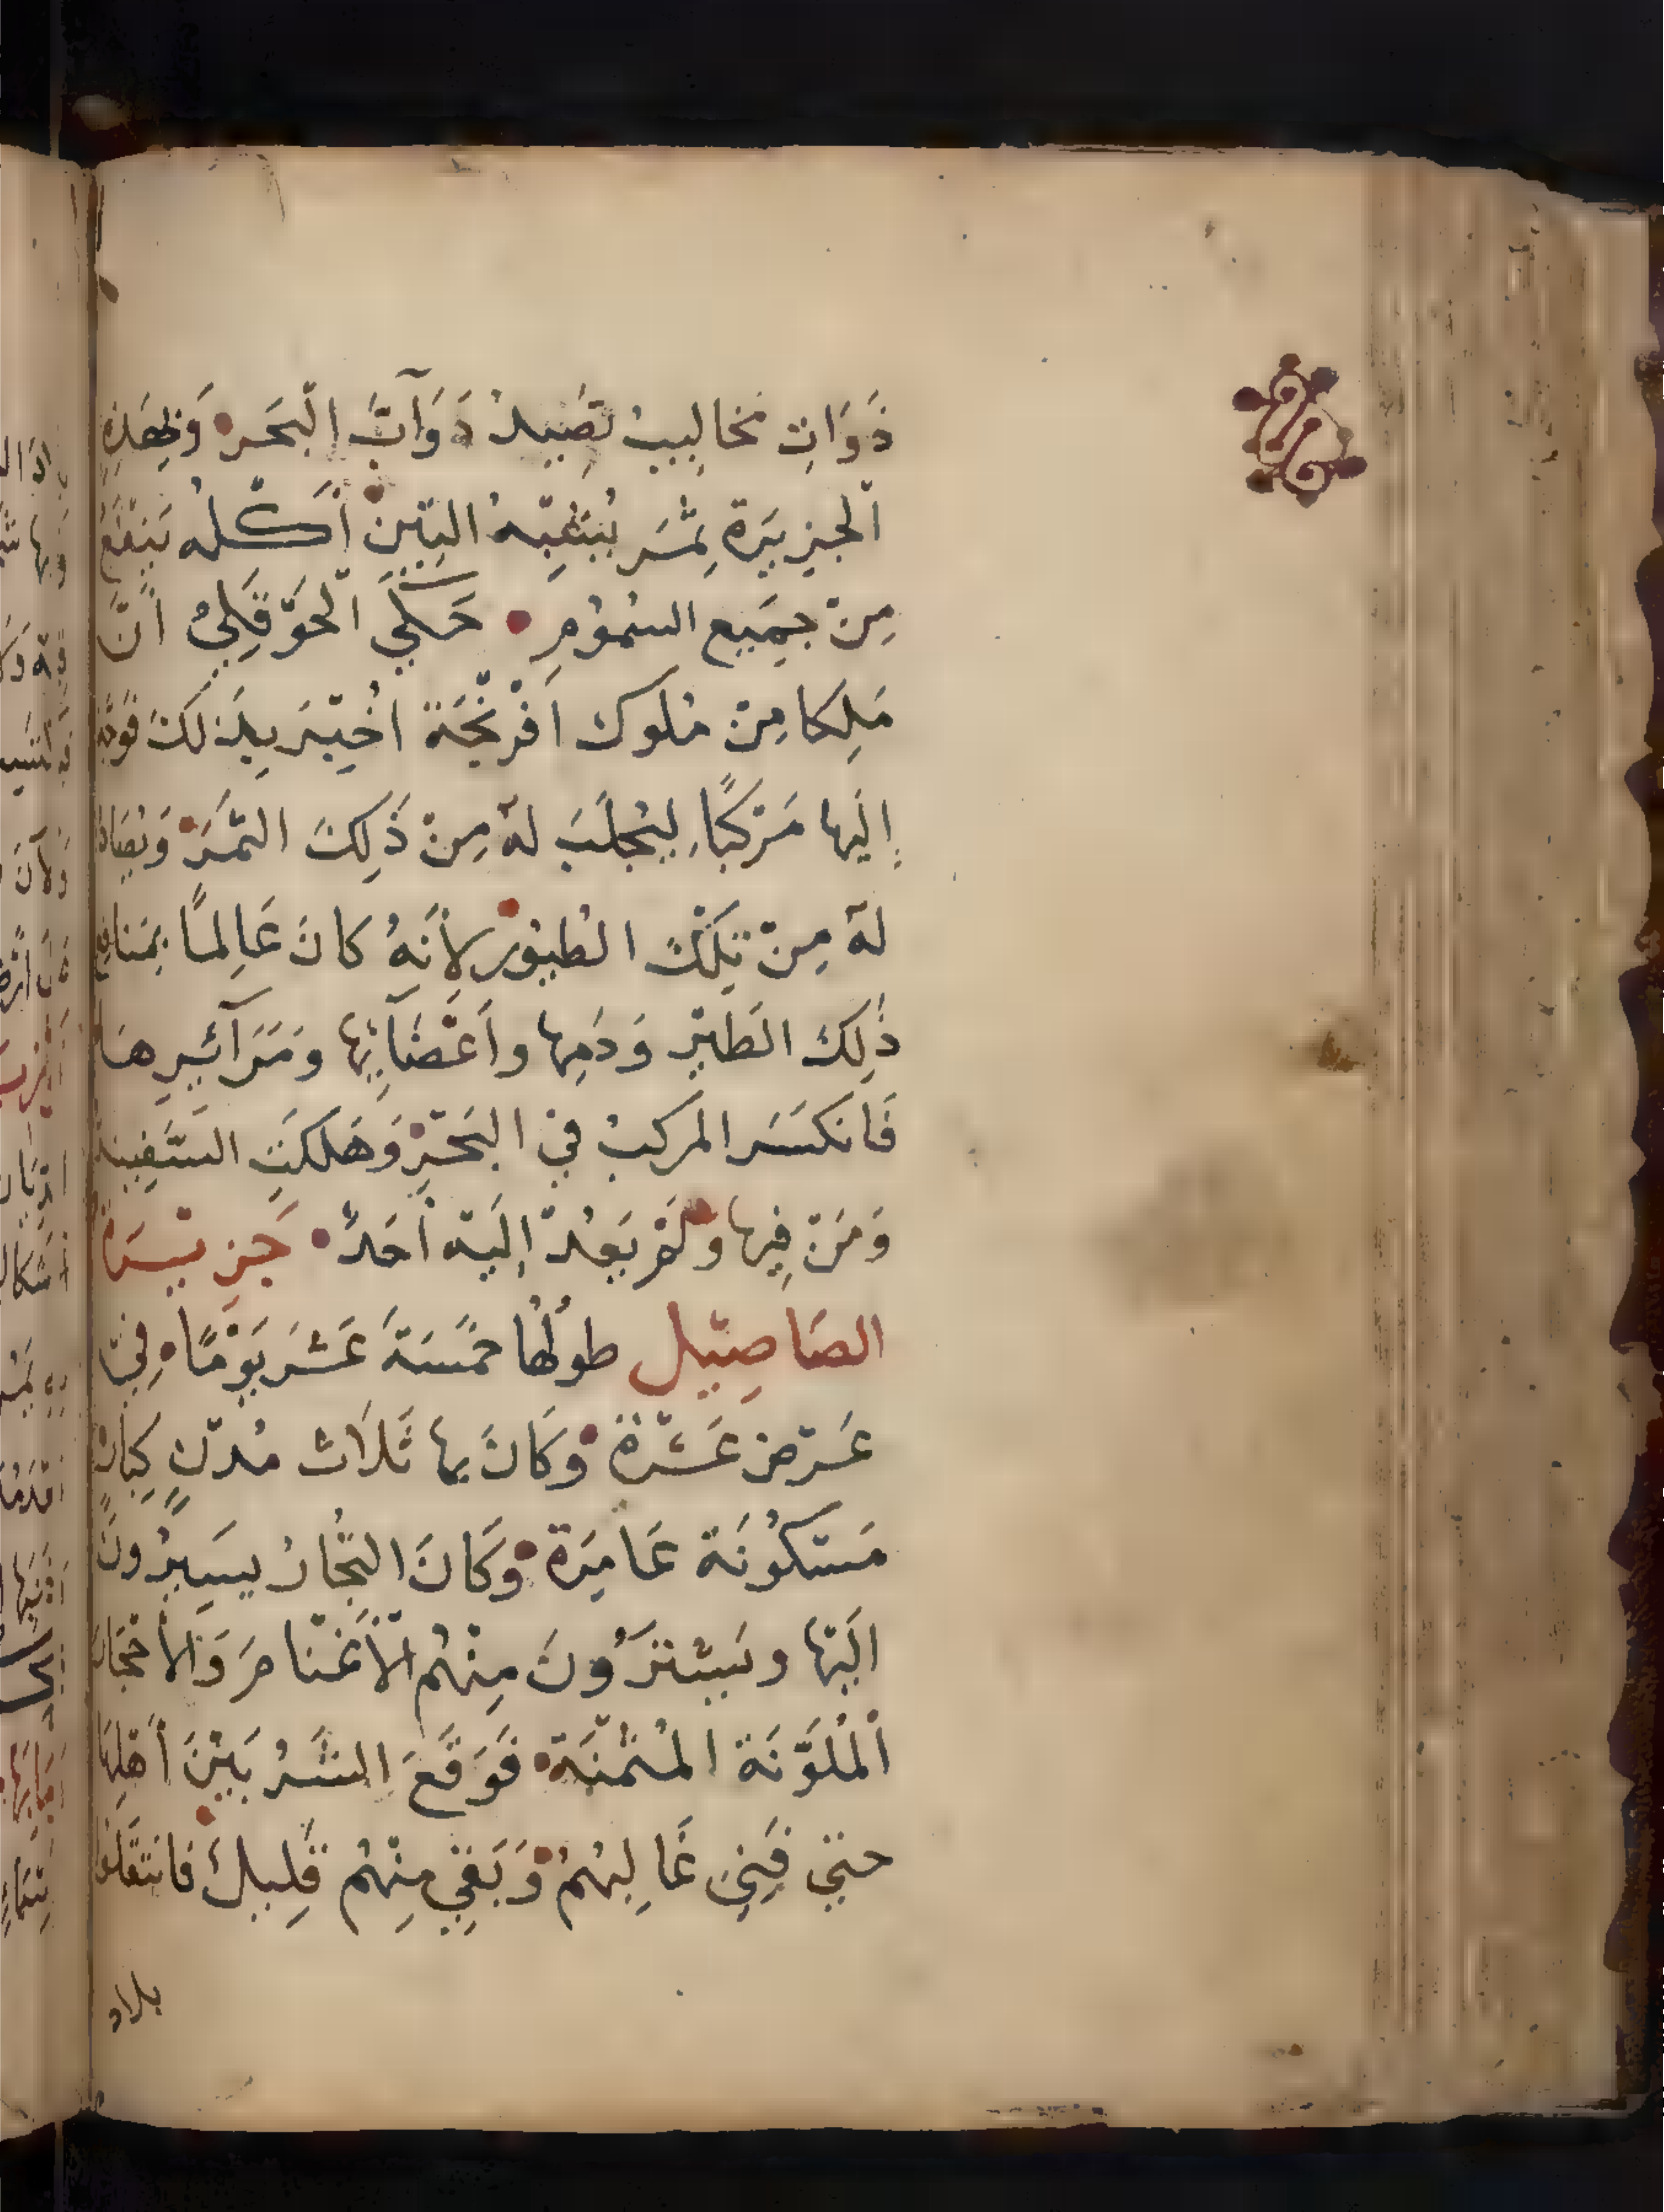 ذَوَاتِ مَخَالِيبَ تَصِيدُ دَوَآبَّ الْبَحْرِ وَبِهَذِهِ
الْجَزِيرَةِ ثَمَر يُشْبِهُ التِّين أَكْلُه يَنْفَعُ
مِنْ جَمِيع السُّمُومِ حَكَى الْحَوْقَلِيُّ أَنَّ
مَلِكا مِنْ مُلوك اَفْرَنْجَة اُخْبِرَ بِذَلِكَ فَوَجَّهَ
إِلَيها مَرْكَبًا لِيُجْلَبَ لهُ مِنْ ذَلِكَ الثَّمَر وَيُصَاد
لهُ مِنْ تِلْكَ الطُّيُور لِأَنَّهُ كانَ عَالِمًا بمَنافع
ذَلِكَ الطَيْرِ وَدَمِها واَعْضَآئِها ومَرَآئِرِهَا
فَانكَسَرَ المركبُ فِي البَحْرِ وَهَلكَتِ السَّفِينة
وَمَنْ فِيها وَلَمْ يَعُدْ إِلَيْهِ أَحَدٌ جَزِيرَة
الصَاصِيل طولُها خَمْسَةَ عَشَرَ يَوْمًا فِي
عَرْض عَشَرَة وَكَانَ بها ثَلَاث مُدُن كِبَار
مَسْكُونَة عَامِرَة وَكَانَ التُّجَّارُ يَسِيرُونَ
اِلَيْهَا ويَشْتَرُونَ مِنْهُم الْأَغْنَامَ وَالْأَحْجَار
الْمُلَوَّنَة المُثَمَّنَة فَوَقَعَ الشَّرُ بَيْنَ أَهْلِهَا
حتي فَنِيَ غَالِبُهُمْ وَبَقِيَ مِنْهُم قَلِيل فَانْتَقَلُوا
بلاد